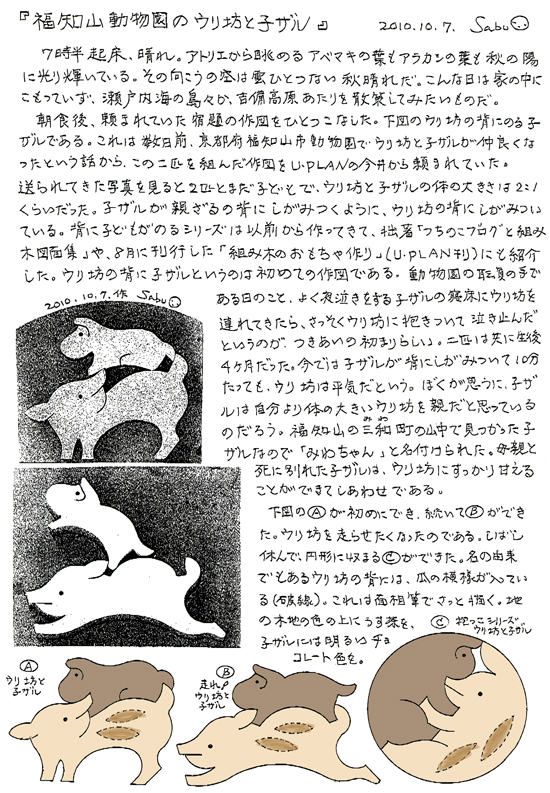 『福知山動物園のウリ坊と子ザル』 2010.10.7. Sabu
7時半起床、晴れ。アトリエから眺めるアベマキの葉もアラカシの葉も秋の陽
に光り輝いている。その向こうの空は雲ひとつない秋晴れだ。こんな日は家の中に
こもっていず、瀬戸内海の島々か、吉備高原あたりを散策してみたいものだ。
朝食後、頼まれていた宿題の作図をひとつこなした。下図のウリ坊の背にのる子
ザルである。これは数日前、京都府福知山市動物園でウリ坊と子ザルが仲良くな
ったという話から、この二匹を組んだ作図をU-PLANの今井から頼まれていた。
送られてきた写真を見ると2匹ともまだ子どもで、ウリ坊と子ザルの体の大きさは2:1
くらいだった。子ザルが親ザルの背にしがみつくように、ウリ坊の背にしがみつい
ている。背に子どもがのるシリーズは以前から作ってきて、拙著「つちのこブログと組み
木図面集」や、8月に刊行した「組み木のおもちゃ作り」(U-PLAN刊)にも紹介
した。ウリ坊の背に子ザルというのは初めての作図である。動物園の職員の手で
2010.10.7.作 Sabu
ある日のこと、よく夜泣きをする子ザルの寝床にウリ坊を
連れてきたら、さっそくウリ坊に抱きついて泣き止んだ
というのが、つきあいの初まりらしい。二匹は共に生後
4ヶ月だった。今では子ザルが背にしがみついて10分
たっても、ウリ坊は平気だという。ぼくが思うに、子ザ
ルは自分より体の大きいウリ坊を親だと思っている
のだろう。福知山の三和町の山中で見つかった子
みわ
ザルなので「みわちゃん」と名付けられた。母親と
死に別れた子ザルは、ウリ坊にすっかり甘える
ことができてしあわせである。
下図のⒶが初めにでき、続いてⒷができ
た。ウリ坊を走らせたくなったのである。しばし
休んで、円形に収まるⒸができた。名の由来
でもあるウリ坊の背には、瓜の模様が入ってい
る(破線)。これは面相筆でさっと描く。地
の木地の色の上にうす茶を、
子ザルには明るいチョ
コレート色を。
Ⓒ 抱っこシリーズ
ウリ坊と子ザル
Ⓐ
ウリ坊と
子ザル
Ⓑ
走れ♪
ウリ坊と
子ザル